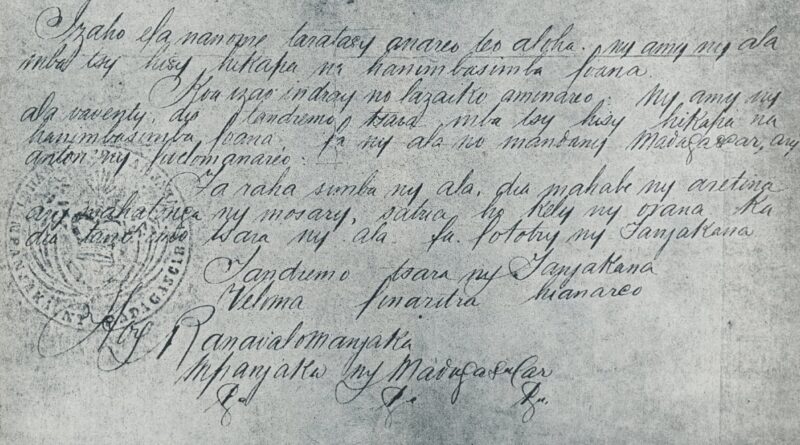 Izaho efa nanome taratasy anareo teo aloha. ny amy ny ala
mba tsy hisy hikapa na hanimbasimba foana.
Koa izao indray no lazaiko aminareo. Ny amy ny
ala vaventy, dia tandremo tsara mba tsy hisy hikapa na
hanimbasimba foana. fa ny ala no mandany Madagascar, ary
anton'ny
Fa raha simba ny ala, dia mahabe ny aretina
ary ny mosary, satria ho kely ny orana Ka
dia tano tsara ny ala. fa fototry ny Fanjakana
Tandremo tsara ny Fanjakana
Veloma finaritra hianareo
Hoy Ranavalomanjaka
Mpanjaka ny Madagascar